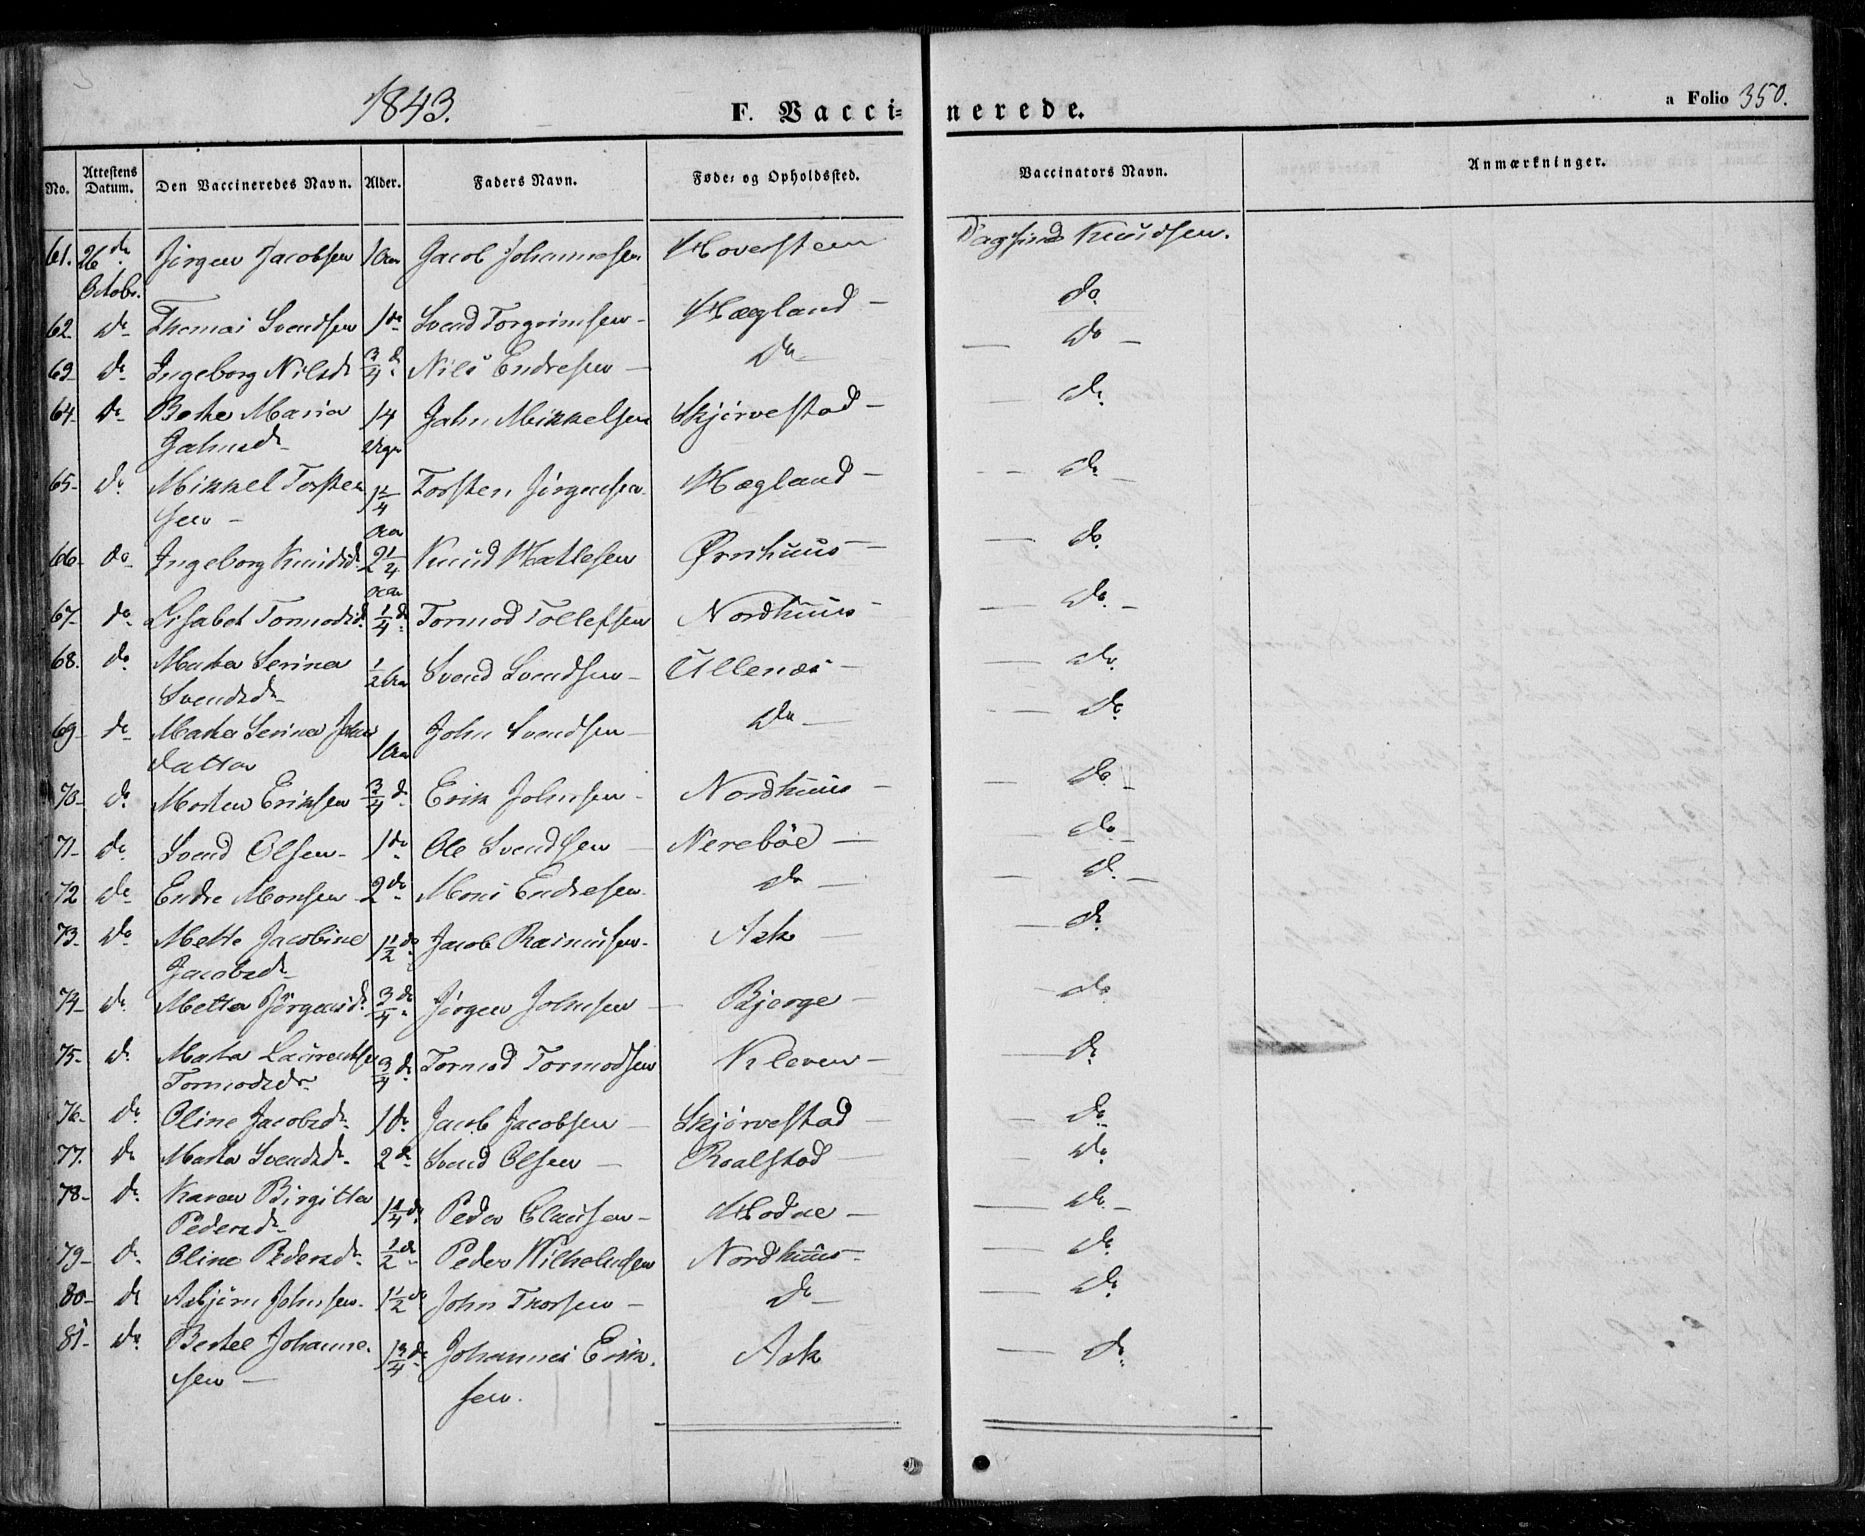 1843.
F. Vacci=
nerede.
a Folio 350.
No. Attestens Datum. Den Vaccineredes Navn. Alder. Faders Navn. Føde= og Opholdssted. Vaccinators Navn. Anmærkninger.
61. 26de Octobr. Jørgen Jacobsen 1 Aar Jacob Johannesen Hoversteen Dagfind Knudsen.
62. do Thomas Svendsen 1 do Svend Torgrimsen - Hægland - do.
63. do Ingeborg Nilsd. 3/4 do Nils Endresen - do - do -
64. do Berthe Maria 14 Jahn Mikkelsen Skjørvestad - do.
Jahnsdr. Uger
65. do. Mikkel Torsten 1 1/4 Torsten Jørgensen Hægland - do.
sen - Aar
66. do. Ingeborg Knudsd. 2 1/4 Knud Hatlesen Ørnhuus - do.
Aar
67. do. Lisabet Tormodsd. 1/4 do. Tormod Tollefsen Nordhuus - do. -
68. do Marta Serina 1/2 Aar Svend Svendsen - Ullenæs - do.
Svendsdr.
69. do Marta Serina John 1 Aar John Svendsen - do - do.
datter
70. do Morten Eriksen 3/4 do. Erik Johnsen - Nordhuus - do. -
71. do. Svend Olsen - 1 do. Ole Svendsen - Nerebøe - do. -
72 do Endre Monsen 2 do. Mons Endresen - do - do. -
73. do Mette Jacobine 1 1/2 do Jacob Rasmussen - Ask - do.
Jacobsdr.
74. do. Metta Jørgensd. 3/4 do. Jørgen Johnsen - Bjerge - do.
75. do. Marta Laurentse 3/4 do. Tormod Tormodsen Kleven - do.
Tormodsdr.
76. do. Oline Jacobsdr. 1 do. Jacob Jacobsen - Skjørvestad - do.
77. do Marta Svendsdr. 2 do. Svend Olsen - Roalstad - do.
78. do. Karen Birgitta 1 1/4 do. Peder Clausen - Hodne - do. -
Pedersdr.
79. do. Oline Pedersdr. 1/2 do. Peder Wilhelmsen Nordhuus - do.
80. do Asbjørn Johnsen. 1 1/2 do John Thorsen - do - do.
81. do. Bertel Johanne- 1 3/4 do. Johannes Erik- Ask - do.
sen - sen.